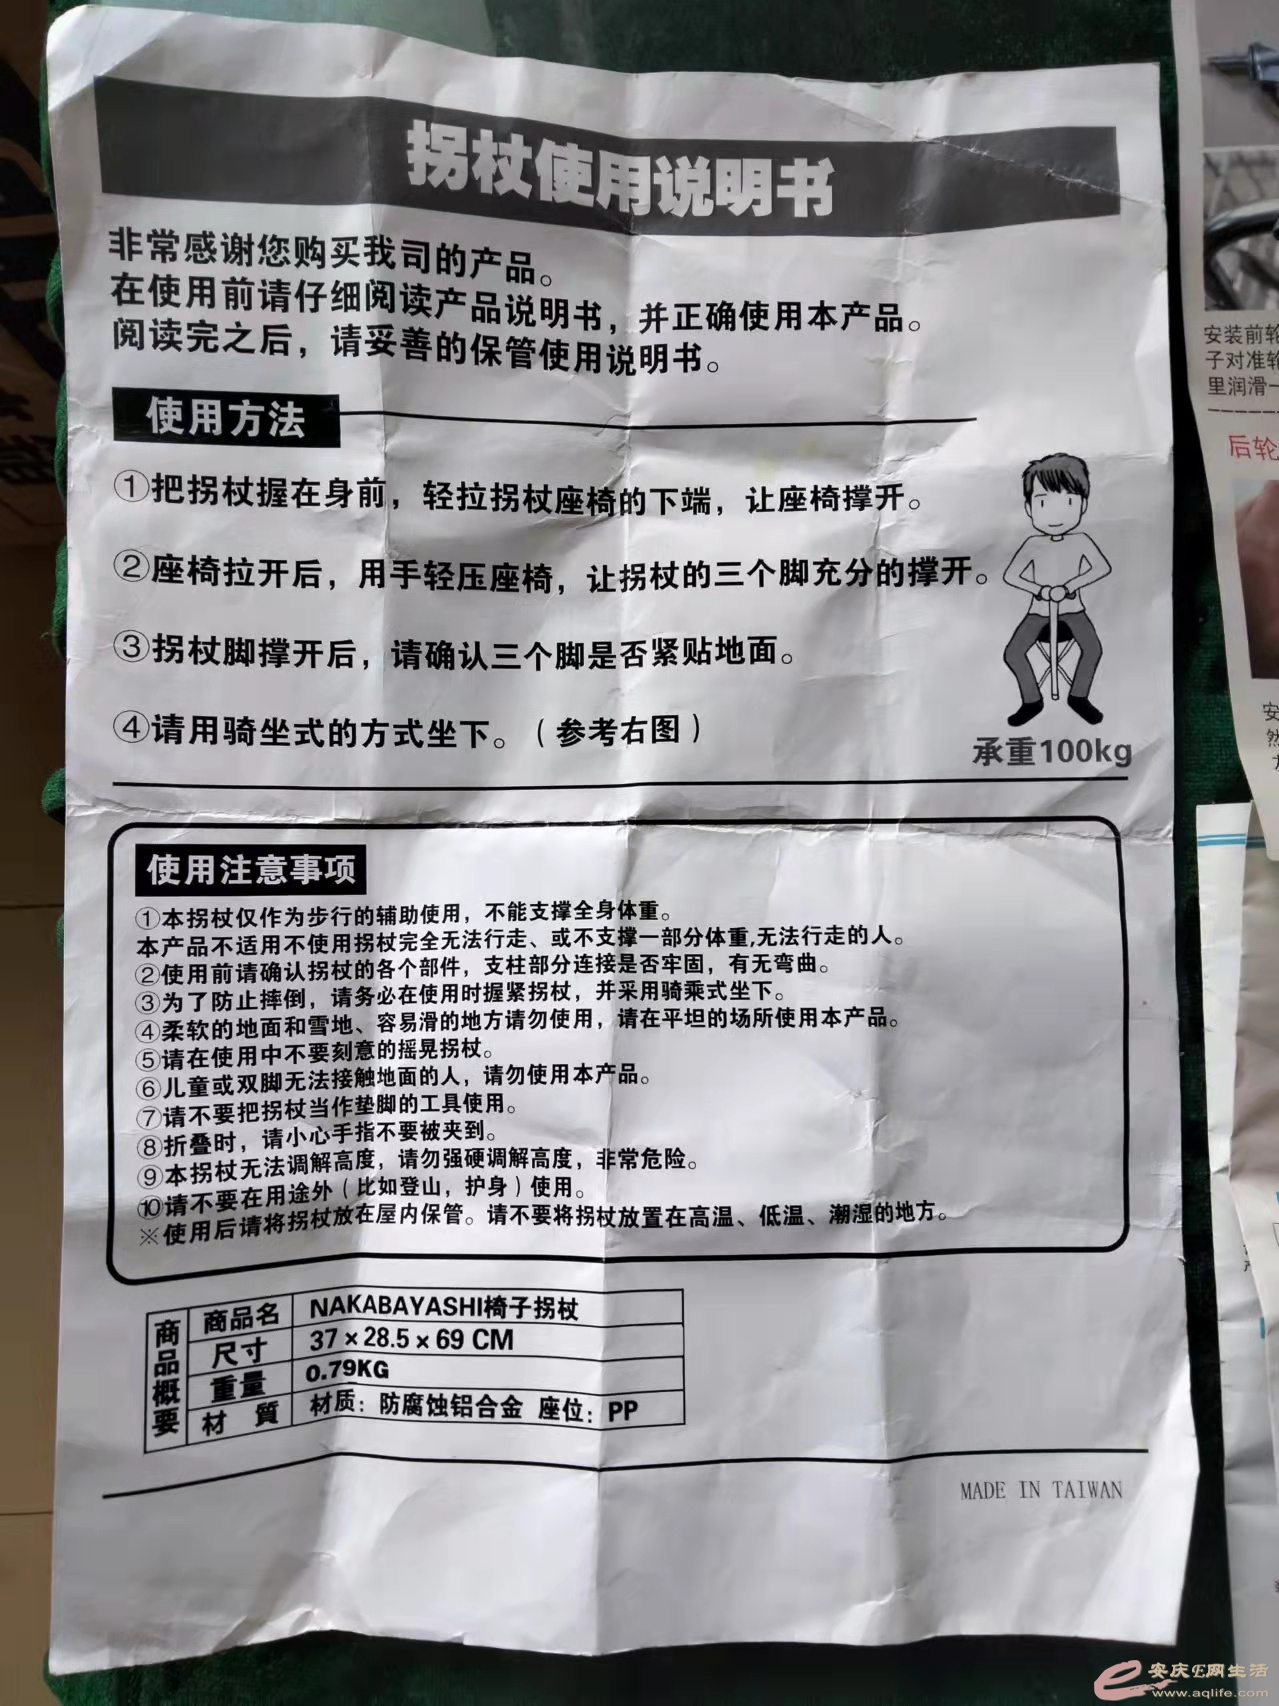 拐杖使用说明书
非常感谢您购买我司的产品。
在使用前请仔细阅读产品说明书，并正确使用本产品。
阅读完之后，请妥善的保管使用说明书。
使用方法
①把拐杖握在身前，轻拉拐杖座椅的下端，让座椅撑开。
②座椅拉开后，用手轻压座椅，让拐杖的三个脚充分的撑开。
③拐杖脚撑开后，请确认三个脚是否紧贴地面。
④请用骑坐式的方式坐下。（参考右图）
承重100kg
使用注意事项
①本拐杖仅作为步行的辅助使用，不能支撑全身体重。
本产品不适用不使用拐杖完全无法行走、或不支撑一部分体重,无法行走的人。
②使用前请确认拐杖的各个部件，支柱部分连接是否牢固，有无弯曲。
③为了防止摔倒，请务必在使用时握紧拐杖，并采用骑乘式坐下。
④柔软的地面和雪地、容易滑的地方请勿使用，请在平坦的场所使用本产品。
⑤请在使用中不要刻意的摇晃拐杖。
⑥儿童或双脚无法接触地面的人，请勿使用本产品。
⑦请不要把拐杖当作垫脚的工具使用。
⑧折叠时，请小心手指不要被夹到。
⑨本拐杖无法调解高度，请勿强硬调解高度，非常危险。
⑩请不要在用途外（比如登山，护身）使用。
※使用后请将拐杖放在屋内保管。请不要将拐杖放置在高温、低温、潮湿的地方。
商品概要
商品名 NAKABAYASHI椅子拐杖
尺寸 37×28.5×69 CM
重量 0.79KG
材 質 材质：防腐蚀铝合金 座位：PP
MADE IN TAIWAN
安装前轮
子对准轮
里润滑一
后轮
安
然
安庆E网生活
www.aqlife.com